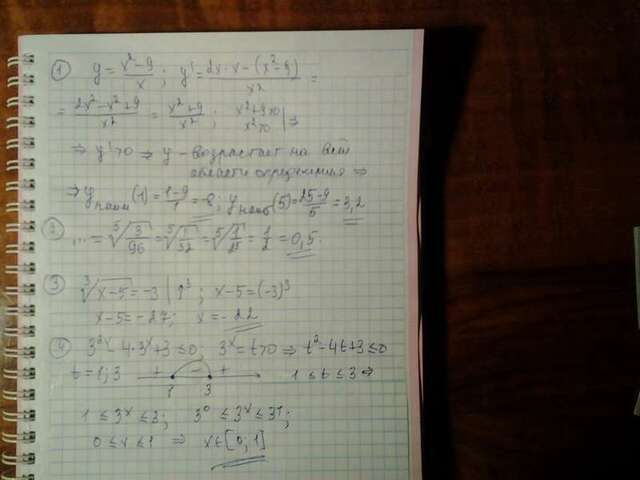 1 y = (x²-9)/x ; y' = (2x·x-(x²-9))/x² =
= (2x²-x²+9)/x² = (x²+9)/x² ; x²+9>0 x²>0 | ⇒
⇒ y'>0 ⇒ y - возрастает на всей
области определения ⇒
⇒ y наим (1) = (1-9)/1 = -8; y наиб (5) = (25-9)/5 = 3,2
2. ... = ⁵√(3/96) = ⁵√(1/32) = ⁵√(1/2⁵) = 1/2 = 0,5.
3 ³√(x-5) = -3 | ↑³ ; x-5=(-3)³
x-5=-27; x=-22
4 3²ˣ-4·3ˣ+3≤0; 3ˣ=t>0 ⇒ t²-4t+3≤0
t=1; 3 + - + 1 3 1≤t≤3 ⇒
1≤3ˣ≤3; 3⁰≤3ˣ≤3¹;
0≤x≤1 ⇒ x∈[0; 1]